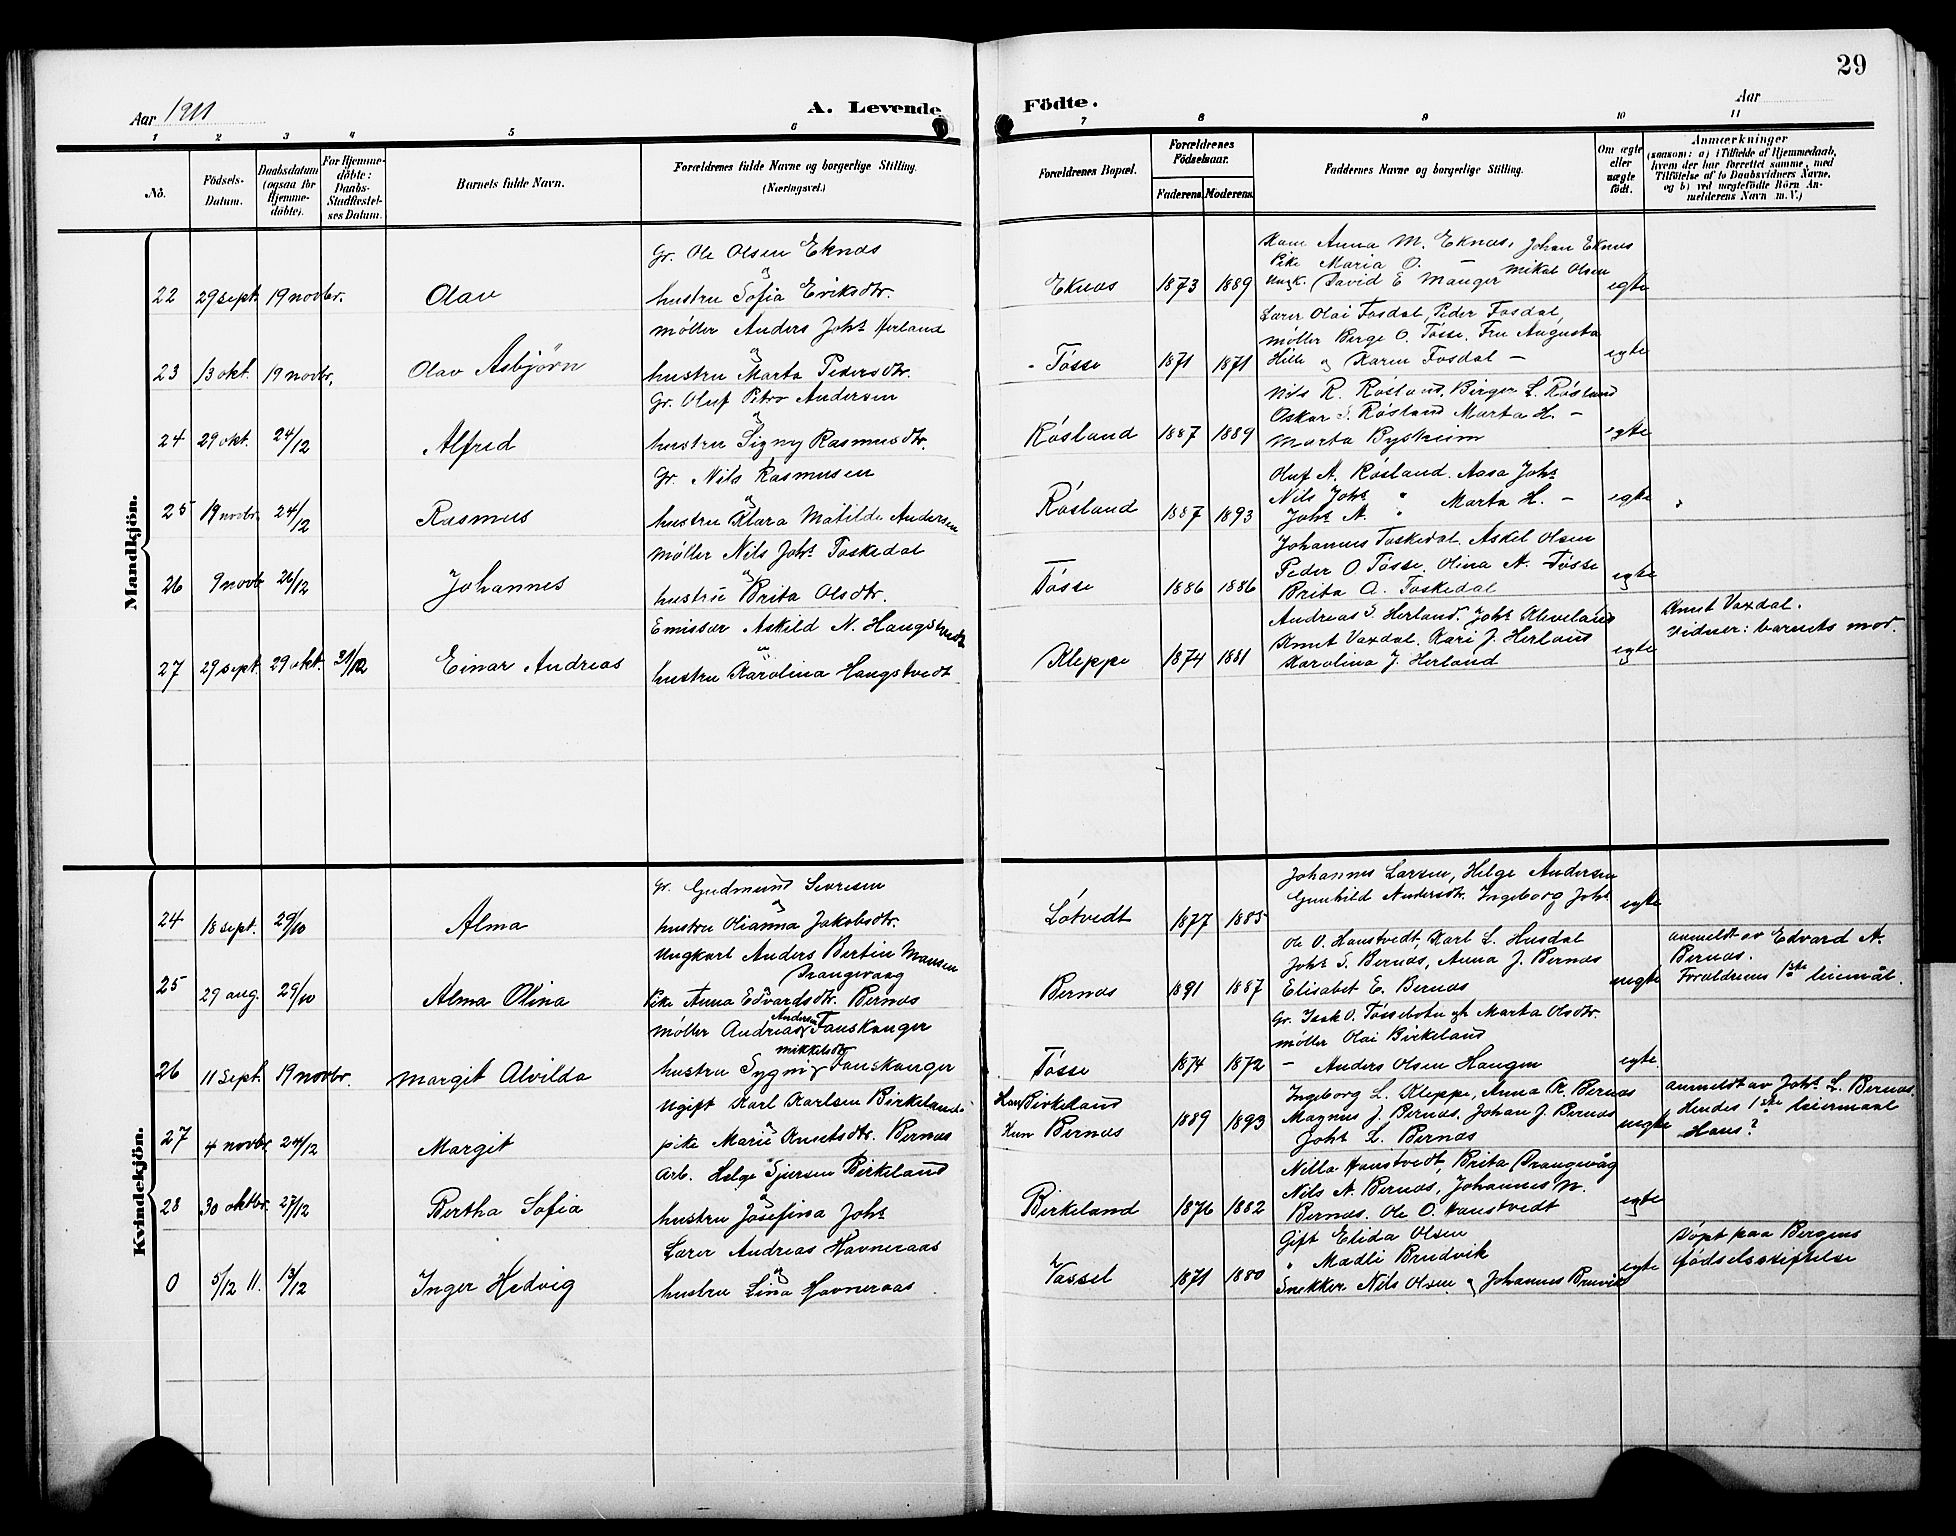 29
Aar 1911
A. Levende Födte.
Aar
1 2 3 4 5 6 7 8 9 10 11
No.
Födsels-Datum.
Daabsdatum (ogsaa for Hjemme-döbte).
For Hjemme-döbte: Daabs-Stadfæstel-ses Datum.
Barnets fulde Navn.
Forældrenes fulde Navne og borgerlige Stilling.
(Næringsvei.)
Forældrenes Bopæl.
Forældrenes Födselsaar.
Faderens. Moderens.
Faddernes Navne og borgerlige Stilling.
Om ægte eller uægte födt.
Anmærkninger
(saasom: a) i Tilfælde af Hjemmedaab,
hvem der har forrettet samme, med
Tilföielse af to Daabsvidners Navne,
og b) ved uægtefödte Börn An-
melderens Navn m. V.)
Mandkjön.
Gr. Ole Olsen Eknæs
og
22 29 sept. 19 novbr. Olav hustru Sofia Eriksdtr. Eknæs 1873 1889 egte
Kone Anna M. Eknæs, Johan Eknæs
Pike Maria O. — Mikal Olsen
Ungk. David E Manger
møller Anders Johs Herland
og
23 13 okt. 19 novbr. Olav Asbjørn hustru Marta Pedersdtr. Tøsse 1871 1871 egte
Lærer Olai Fosdal, Peder Fosdal,
møller Berge O. Tøsse. Fru Augusta
Hille og Karen Fosdal —
Gr. Oluf Petro Andersen
og
24 29 okt. 24/12 Alfred hustru Signy Rasmusdtr. Røsland 1887 1889 egte
Nils R. Røsland, Birger L. Røsland
Oskar S. Røsland Marta H. —
Marta Bysheim
Gr. Nils Rasmusen
og
25 19 novbr. 24/12 Rasmus hustru Klara Matilde Andersen Røsland 1887 1893 egte
Oluf A. Røsland. Aasa Johs
Nils Johs " Marta H. —
Johs A. "
møller Nils Johs Toskedal
og
26 9 novb 26/12 Johannes hustru Brita Olsdtr. Tøsse 1886 1886 egte
Johannes Toskedal. Askel Olsen
Peder O Tøsse. Olina A. Tøsse
Brita A. Toskedal
Emissær Askild N. Haugstvedt
og
27 29 sept. 29 okt. 31/12 Einar Andreas hustru Karolina Haugstvedt Kleppe 1874 1881 egte
Andreas S. Herland. Johs Kleveland
Knut Vaxdal. Kari J. Herland
Karolina J. Herland
Knut Vaxdal.
Vidner: barnets mor.
Kvindekjön.
Gr. Gudmund Sevresen
og
24 18 sept. 29/10 Alma hustru Olianna Jakobsdtr. Løtvedt 1877 1885 egte
Johannes Larsen, Helge Andersen
Gunhild Andersdtr. Ingeborg Johs
Ungkarl Anders Bertin Monsen
Drangevaag
25 29 aug. 29/10 Alma Olina Pike Anna Edvardsdtr. Bernæs Bernæs 1891 1887 uegte
Ole O. Haustvedt, Karl L. Husdal
Johs S. Bernæs, Anna J. Bernæs
Elisabet E. Bernæs
anmeldt av Edvard A.
Bernæs.
Forældrenes 1ste leiemål.
Andersen
møller Andreas Fauskanger
Mikkelsdtr
26 11 sept. 19 novbr. Margit Alvilda hustru Sygni Fauskanger Tøsse 1874 1872 egte
Gr. Isak O. Tøssebotn og Marta Olsdtr.
møller Olai Birkeland
— Anders Olsen Haugen
Ugift Karl Karlsen Birkeland
og
27 4 novbr. 24/12 Margit pike Marie Knutsdtr. Bernæs
Han Birkeland
Hun Bernæs 1889 1893 uegte
Ingeborg L. Kleppe, Anna K. Bernæs
Magnus J. Bernæs. Johan J Bernæs
Johs L. Bernæs
anmeldt av Johs L. Bernæs.
Hendes 1ste leiermaal
Hans?
Arb. Helge Sjursen Birkeland
og
28 30 oktbr. 27/12 Bertha Sofia hustru Josefina Johs Birkeland 1876 1882 egte
Nilla Haustvedt, Brita Drangevåg
Nils A. Bernæs, Johannes N.
Bernæs. Ole O. Haustvedt
Lærer Andreas Havneraas
og
0 5/12 11. 13/12 Inger Hedvig hustru Lina Havneraas Vassel 1871 1880 egte
Gift Elida Olsen
" Madli Brudvik
Snekker Nils Olsen og Johannes Bruvik
Døpt paa Bergens
fødselsstiftelse